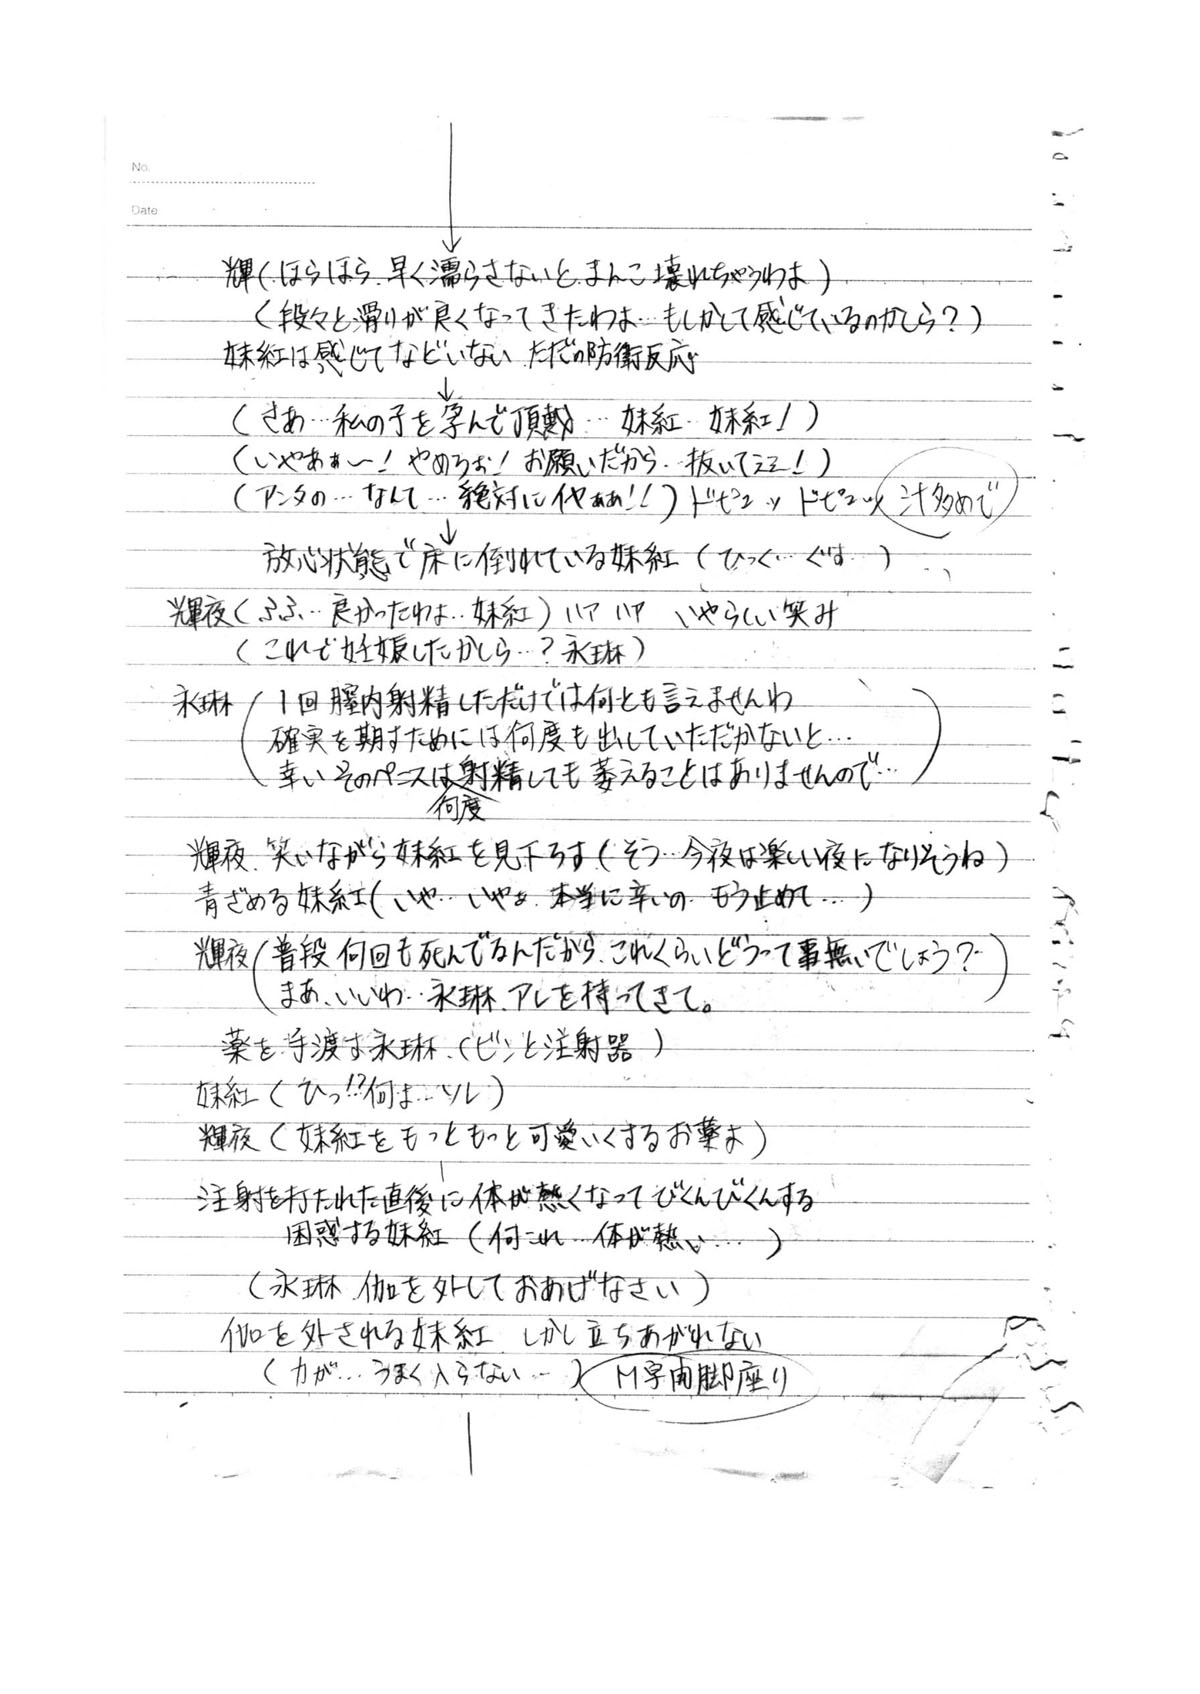 No.
Date
輝(ほらほら、早く濡らさないと、まんこ壊れちゃうわよ)
(段々と滑りが良くなってきたわよ…もしかして感じているのかしら?)
妹紅は感じてなどいない ただの防衛反応
↓
(さあ…私の子を孕んで頂戴…妹紅…妹紅!)
(いやあぁ〜!やめろぉ!お願いだから…抜いてぇぇ!)
(アンタの…なんて…絶対にイヤぁぁ!!)ドピュッ ドピュッ 汁多めで
↓
放心状態で床に倒れている妹紅(ひっく…ぐす…)
輝夜(ふふ…良かったわよ…妹紅)ハァ ハァ いやらしい笑み
(これで妊娠したかしら…?永琳)
永琳(1回膣内射精しただけでは何とも言えませんわ
確実を期すためには何度も出していただかないと…
幸いそのペニスは何度射精しても萎えることはありませんので…)
輝夜、笑いながら妹紅を見下ろす(そう…今夜は楽しい夜になりそうね)
青ざめる妹紅(いや…いやぁ、本当に辛いの もう止めて…)
輝夜(普段何回も死んでるんだから、これくらいどうって事無いでしょう?
まあ、いいわ…永琳、アレを持ってきて。)
薬を手渡す永琳、(ビンと注射器)
妹紅(ひっ!?何よ…ソレ)
輝夜(妹紅をもっともっと可愛いくするお薬よ)
注射を打たれた直後に体が熱くなってびくんびくんする
困惑する妹紅(何これ…体が熱い…)
(永琳、伽を外しておあげなさい)
伽を外される妹紅、しかし立ちあがれない
(力が…うまく入らない…)M字開脚座り